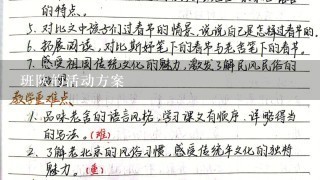 的特点。
5. 对比文中孩子们过春节的情景,说说自己是怎样过春节的。
6. 拓展阅读,对比斯妤笔下的春节与老舍笔下的春节。
7. 感受祖国传统文化的魅力,激发了解民风民俗的
班队的活动方案
教学重难点
1. 品味老舍的语言风格,学习课文有顺序、详略得当
的写法。(难)
2. 了解老北京的风俗习惯,感受传统年文化的独特
魅力。(重)